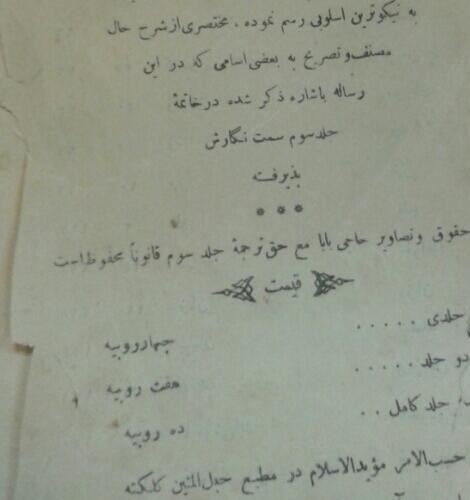 به نیکوترین اسلوبی رسم نموده . مختصری از شرح حال
مصنف و تصریح به بعضی اسامی که در این
رساله باشاره ذکر شده در خاتمهٔ
جلد سوم سمت نگارش
پذیرفته
* * *
حقوق و تصاویر حاجی بابا مع حق ترجمهٔ جلد سوم قانوناً محفوظ است
قیمت
جلدی . . . . . چهار روپیه
دو جلد . . . . . هفت روپیه
جلد کامل . . ده روپیه
حسب الامر مؤید الاسلام در مطبع حبل المتین کلکته